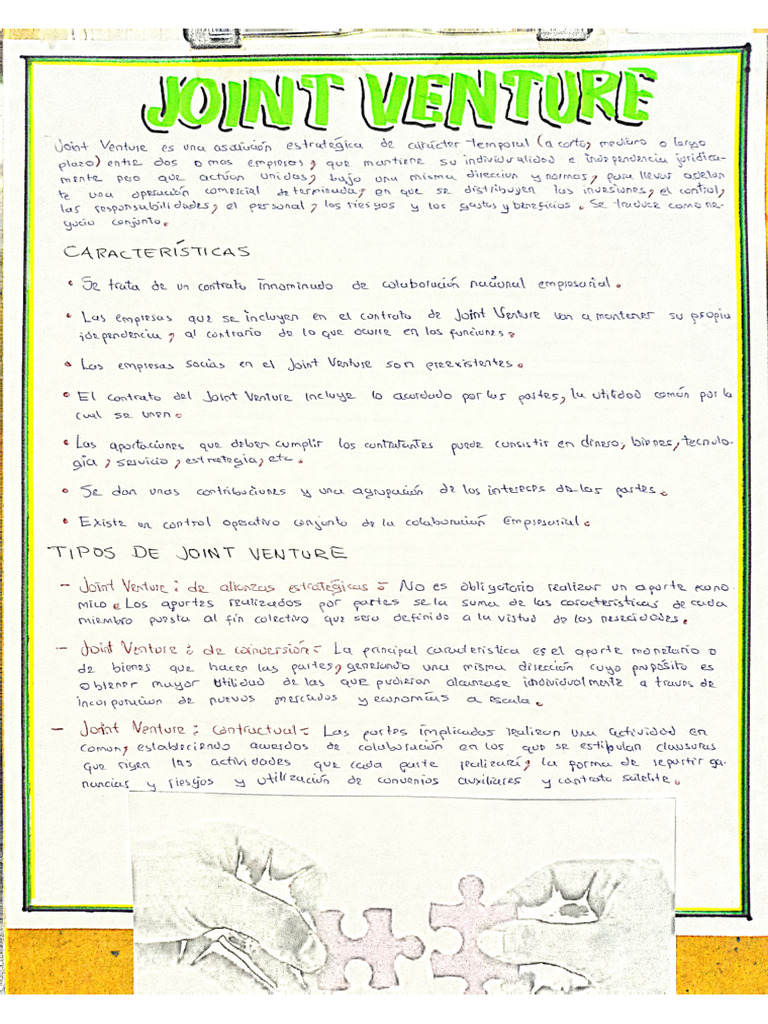 JOINT VENTURE
Joint Venture es una asociación estratégica de carácter temporal (a corto, mediano o largo
plazo) entre dos o mas empresas, que mantiene su individualidad e independencia juridica-
mente pero que actúan unidas, bajo una misma direccion y normas, para llevar adelan
te una operación comercial determinada, en que se distribuyen las inversiones, el control,
las responsabilidades, el personal, los riesgos y los gastos y beneficios. Se traduce como ne-
gocio conjunto.
CARACTERÍSTICAS
• Se trata de un contrato innominado de colaboración nacional empresarial.
• Las empresas que se incluyen en el contrato de Joint Venture van a mantener su propia
idependencia, al contrario de lo que ocurre en las funciones.
• Las empresas socias en el Joint Venture son preexistentes.
• El contrato del Joint Venture incluye lo acordado por las partes, la utilidad común por la
cual se unen.
• Las aportaciones que deben cumplir los contratantes puede consistir en dinero, bienes, tecnolo-
gia, servicio, estrategia, etc.
• Se dan unas contribuciones y una agrupación de los intereces de las partes.
• Existe un control operativo conjunto de la colaboración Empresarial.
TIPOS DE JOINT VENTURE
- Joint Venture: de alianzas estratégicas:- No es obligatorio realizar un aporte econo-
mico. Los aportes realizados por partes se la suma de las características de cada
miembro puesta al fin colectivo que sera definido a la virtud de las necesidades.
- Joint Venture: de coinversión:- La principal caracteristica es el aporte monetario o
de bienes que hacen las partes, generando una misma dirección cuyo propósito es
obtener mayor utilidad de las que pudieran alcanzase individualmente a traves de
incorporacion de nuevos mercados y economías a escala.
- Joint Venture: contractual:- Las partes implicadas realizan una actividad en
comun, estableciendo acuerdos de colaboración en los que se estipulan clausuras
que rigen las actividades que cada parte realizará, la forma de repartir ga-
nancias y riesgos y utilización de convenios auxiliares y contrato satelite.